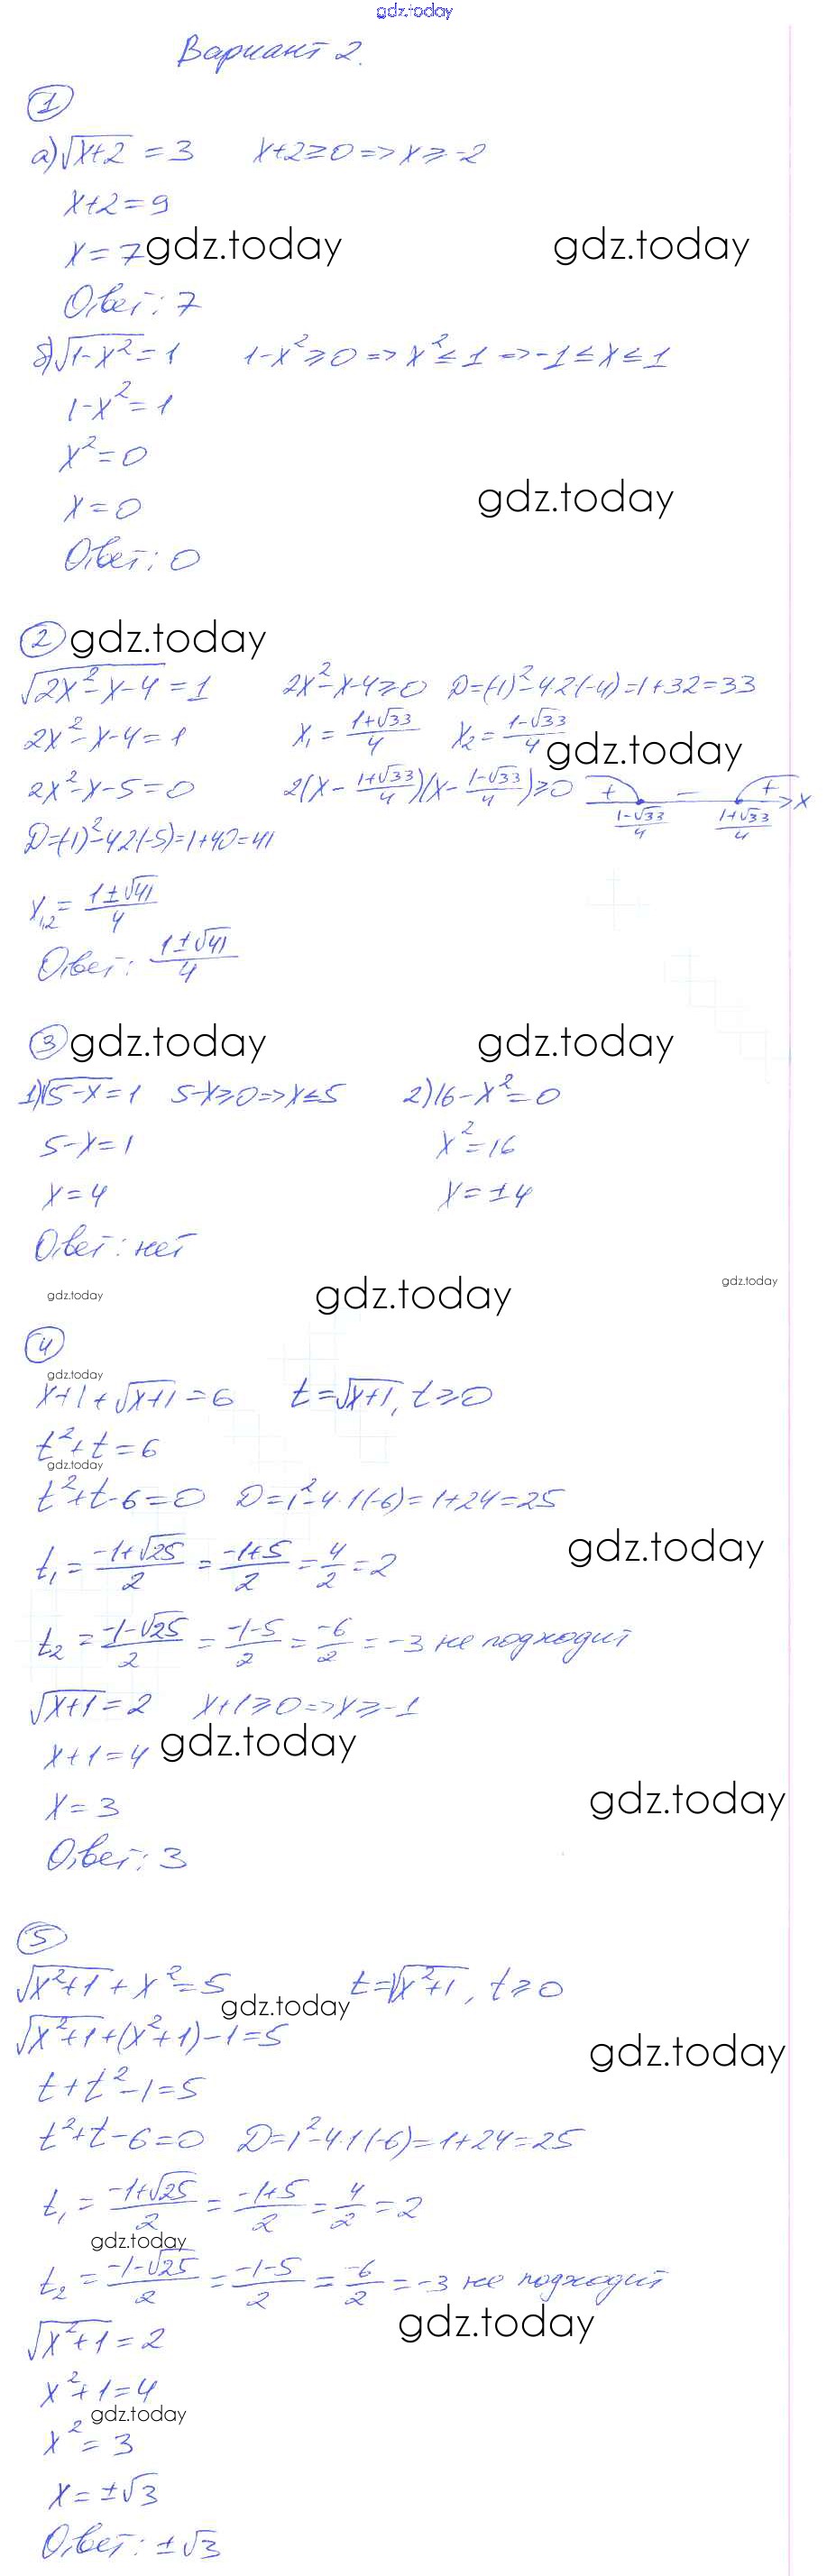 gdz.today
Вариант 2.
1
а) √(x+2) = 3   x+2≥0 => x≥-2
x+2=9
x=7 gdz.today gdz.today
Ответ: 7
б) √(1-x²) = 1   1-x²≥0 => x²≤1 => -1≤x≤1
1-x²=1
x²=0
x=0
gdz.today
Ответ: 0
2 gdz.today
√(2x²-x-4) = 1   2x²-x-4≥0   D=(-1)²-4·2(-4)=1+32=33
2x²-x-4=1   x₁ = (1+√33)/4   x₂ = (1-√33)/4 gdz.today
2x²-x-5=0   2(x - (1+√33)/4)(x - (1-√33)/4)≥0   + − + x
(1-√33)/4   (1+√33)/4
D=(-1)²-4·2(-5)=1+40=41
x₁,₂ = (1±√41)/4
Ответ: (1±√41)/4
3 gdz.today gdz.today
1) √(5-x) = 1   5-x≥0 => x≤5   2) 16-x²=0
5-x=1   x²=16
x=4   x=±4
Ответ: нет
gdz.today gdz.today gdz.today
4
gdz.today
x+1+√(x+1) = 6   t=√(x+1), t≥0
t²+t=6
gdz.today
t²+t-6=0   D=1²-4·1(-6)=1+24=25
t₁ = (-1+√25)/2 = (-1+5)/2 = 4/2 = 2 gdz.today
t₂ = (-1-√25)/2 = (-1-5)/2 = -6/2 = -3 не подходит
√(x+1) = 2   x+1≥0 => x≥-1
x+1=4 gdz.today
x=3 gdz.today
Ответ: 3
5
√(x²+1) + x² = 5   t=√(x²+1), t≥0
gdz.today
√(x²+1) + (x²+1) - 1 = 5
gdz.today
t+t²-1=5
t²+t-6=0   D=1²-4·1(-6)=1+24=25
t₁ = (-1+√25)/2 = (-1+5)/2 = 4/2 = 2
gdz.today
t₂ = (-1-√25)/2 = (-1-5)/2 = -6/2 = -3 не подходит
gdz.today
√(x²+1) = 2
x²+1=4
gdz.today
x²=3
x=±√3
Ответ: ±√3